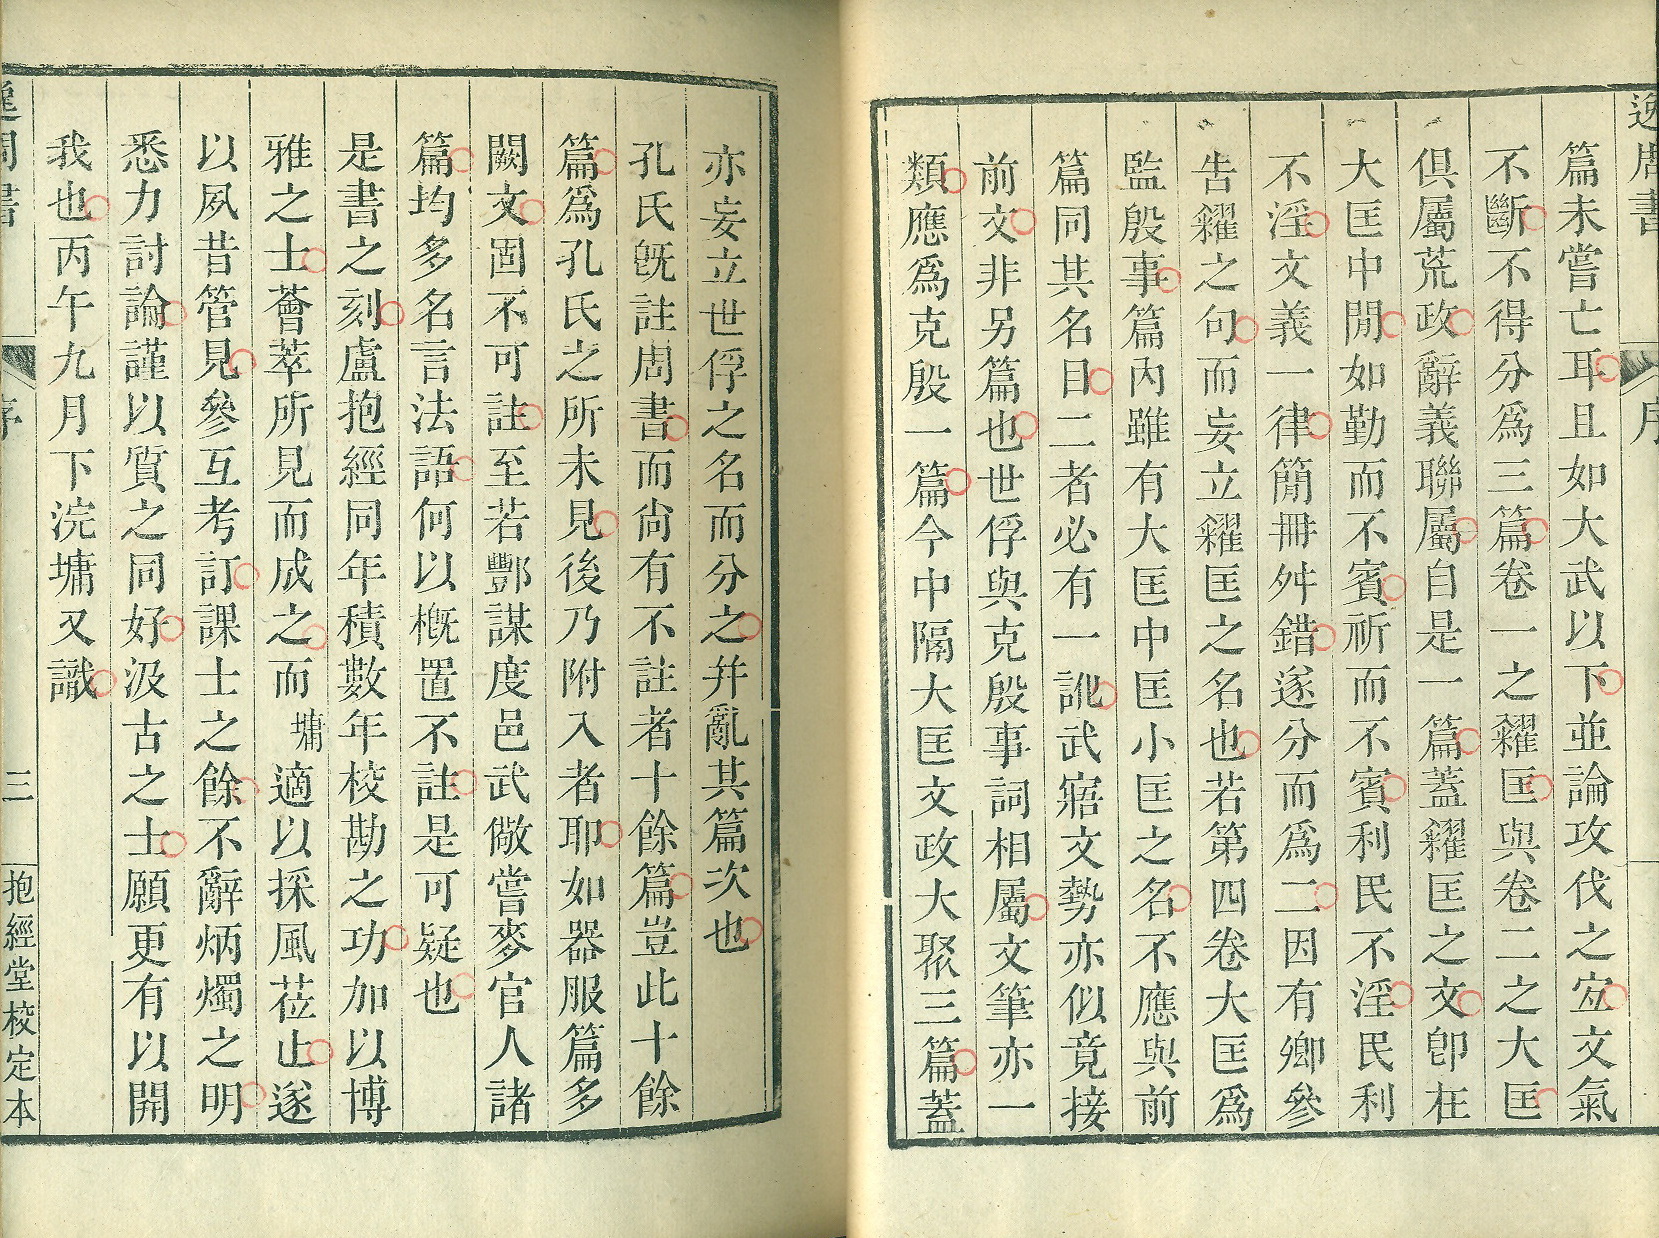 逸周書
序
篇未嘗亡耳且如大武以下並論攻伐之宜文氣
不斷不得分爲三篇卷一之糴匡與卷二之大匡
俱屬荒政辭義聯屬自是一篇蓋糴匡之文卽在
大匡中閒如勤而不賓祈而不賓利民不淫民利
不淫文義一律簡冊舛錯遂分而爲二因有鄉參
告糴之句而妄立糴匡之名也若第四卷大匡爲
監殷事篇內雖有大匡中匡小匡之名不應與前
篇同其名目二者必有一訛武寤文勢亦似竟接
前文非另篇也世俘與克殷事詞相屬文筆亦一
類應爲克殷一篇今中隔大匡文政大聚三篇蓋
亦妄立世俘之名而分之并亂其篇次也
孔氏旣註周書而尙有不註者十餘篇豈此十餘
篇爲孔氏之所未見後乃附入者耶如器服篇多
闕文固不可註至若酆謀度邑武儆嘗麥官人諸
篇均多名言法語何以槪置不註是可疑也
是書之刻盧抱經同年積數年校勘之功加以博
雅之士薈萃所見而成之而墉適以採風莅止遂
以夙昔管見參互考訂課士之餘不辭炳燭之明
悉力討論謹以質之同好汲古之士願更有以開
我也丙午九月下浣墉又識
逸周書
序
三
抱經堂校定本